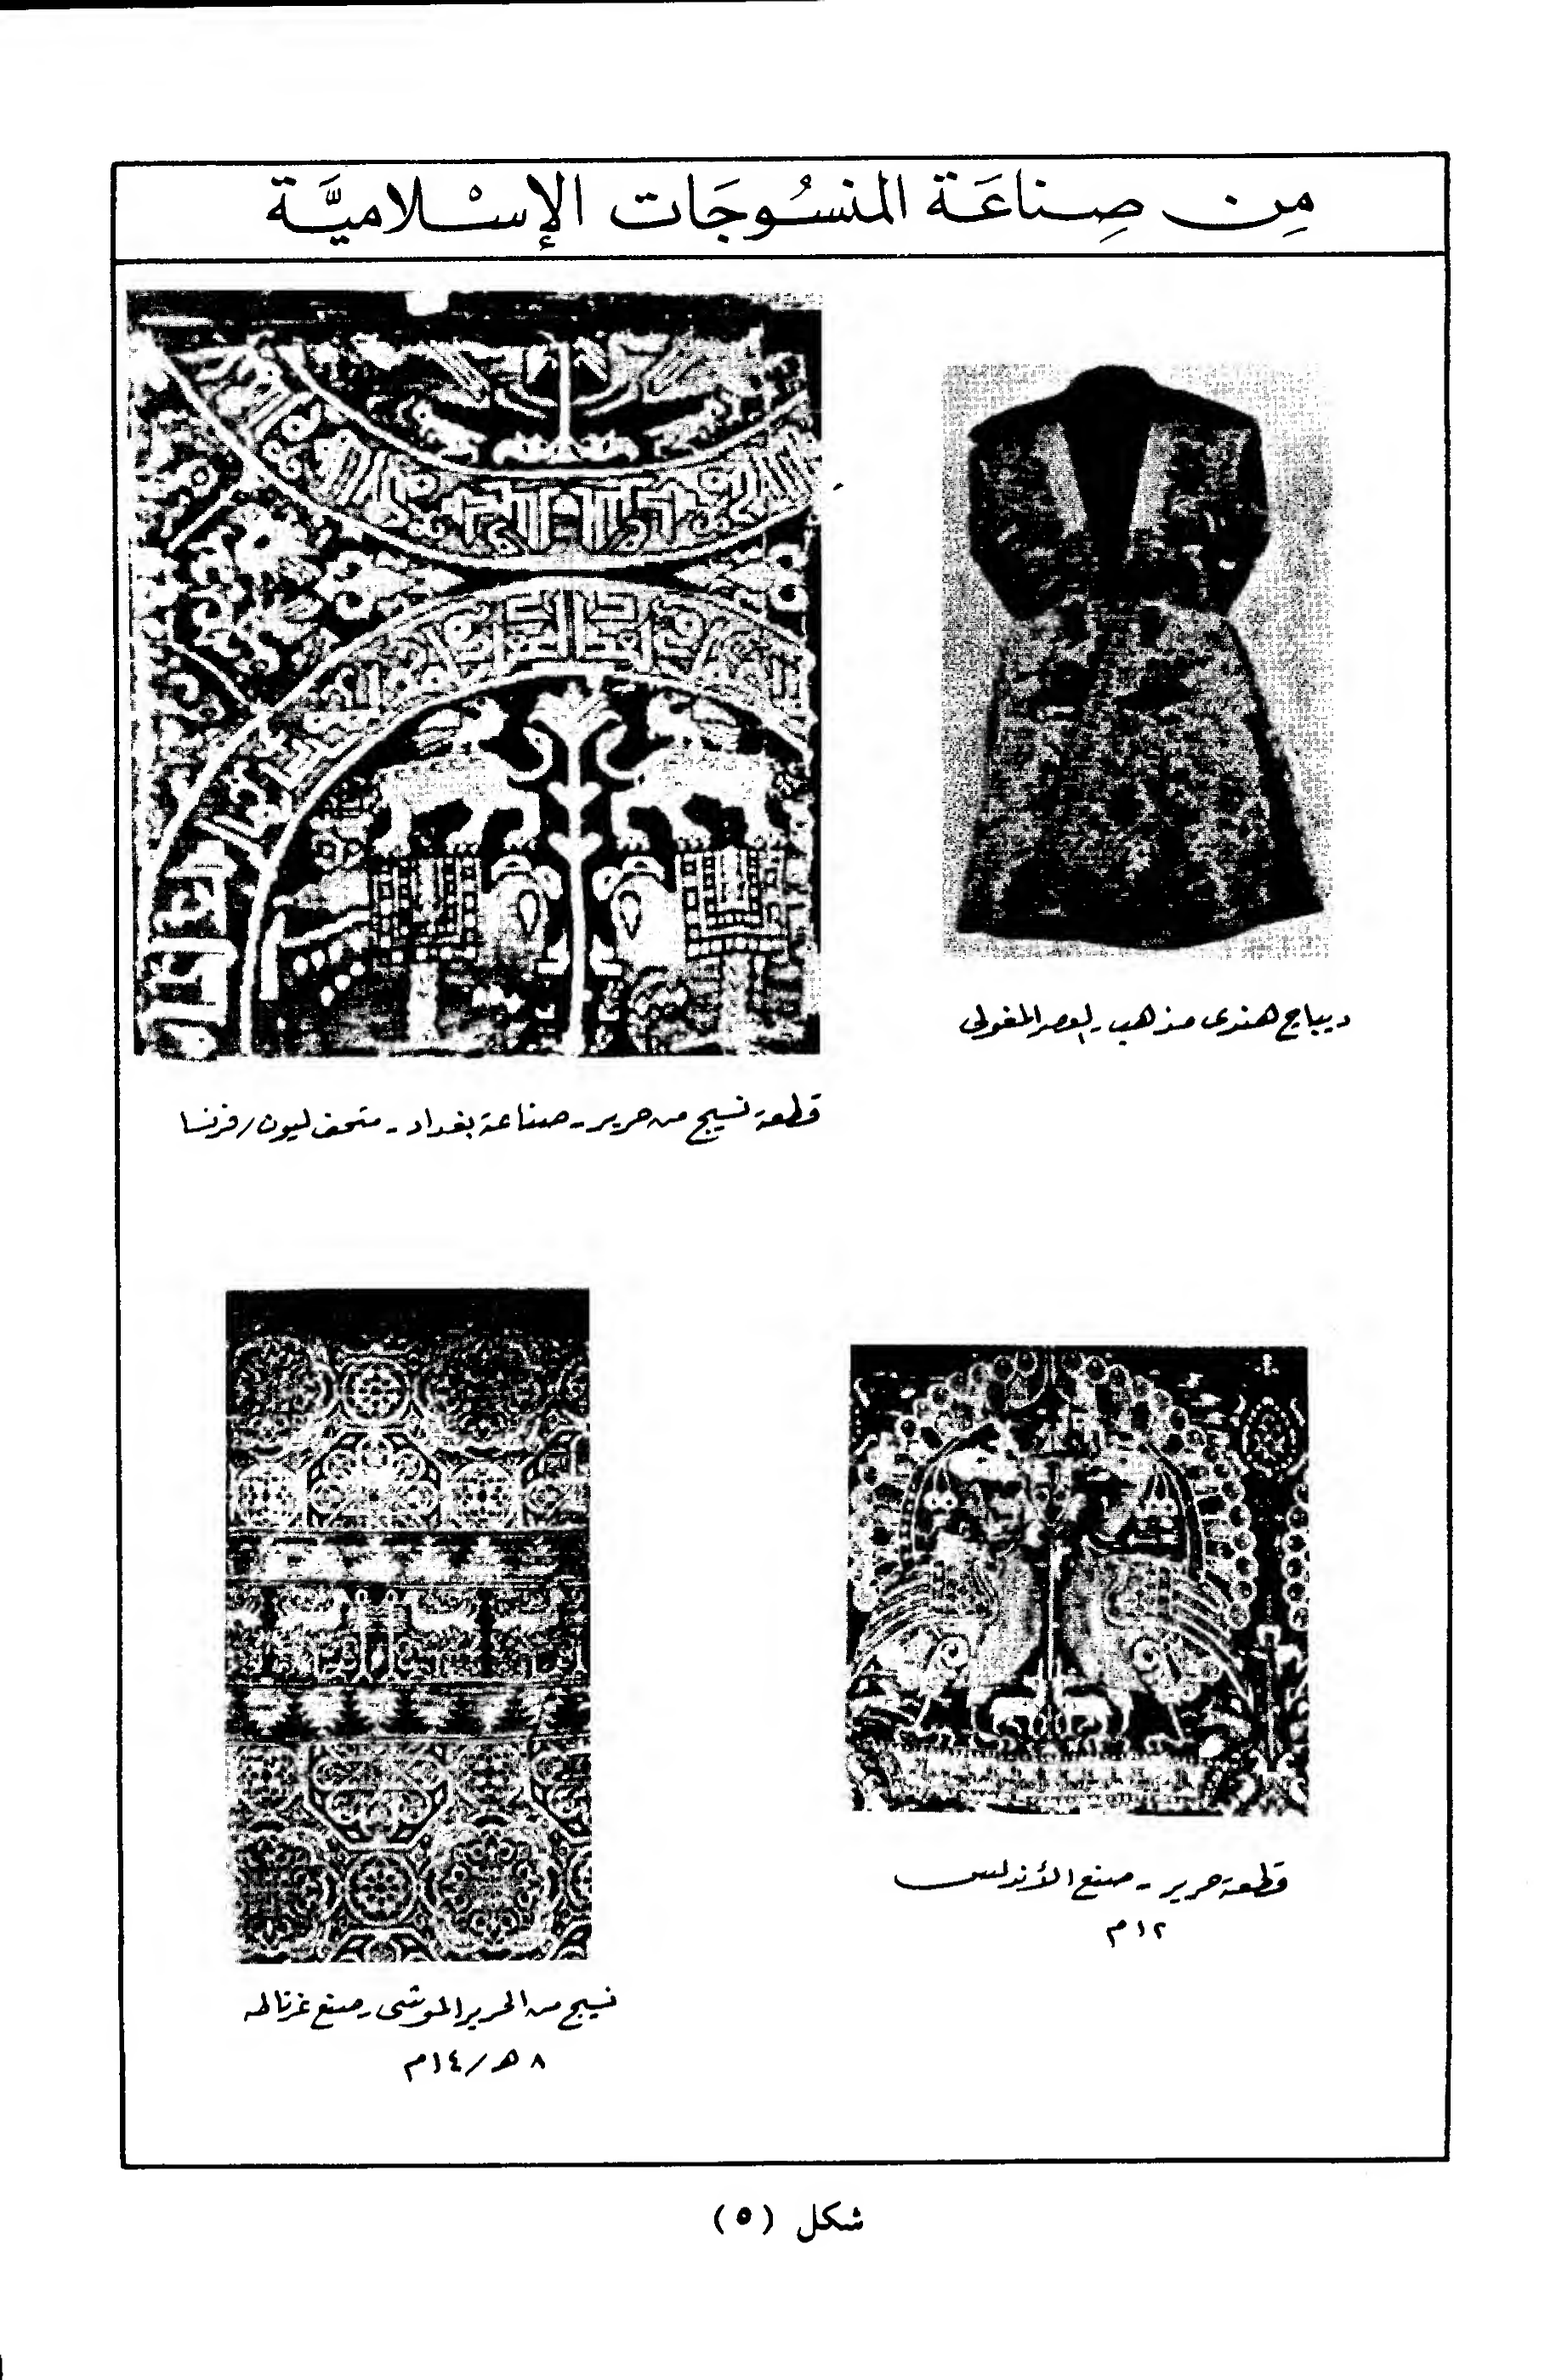 مِن صِناعَة المنسُوجَات الإسْلاميَّة
ديباج هندي مذهب - العصر المغولي
قطعة نسيج من حرير - صناعة بغداد - متحف ليون / فرنسا
قطعة حرير - صنع الأندلس
١٢م
نسيج من الحرير الموشى - صنع غرناطه
٨ هـ / ١٤م
شكل (٥)